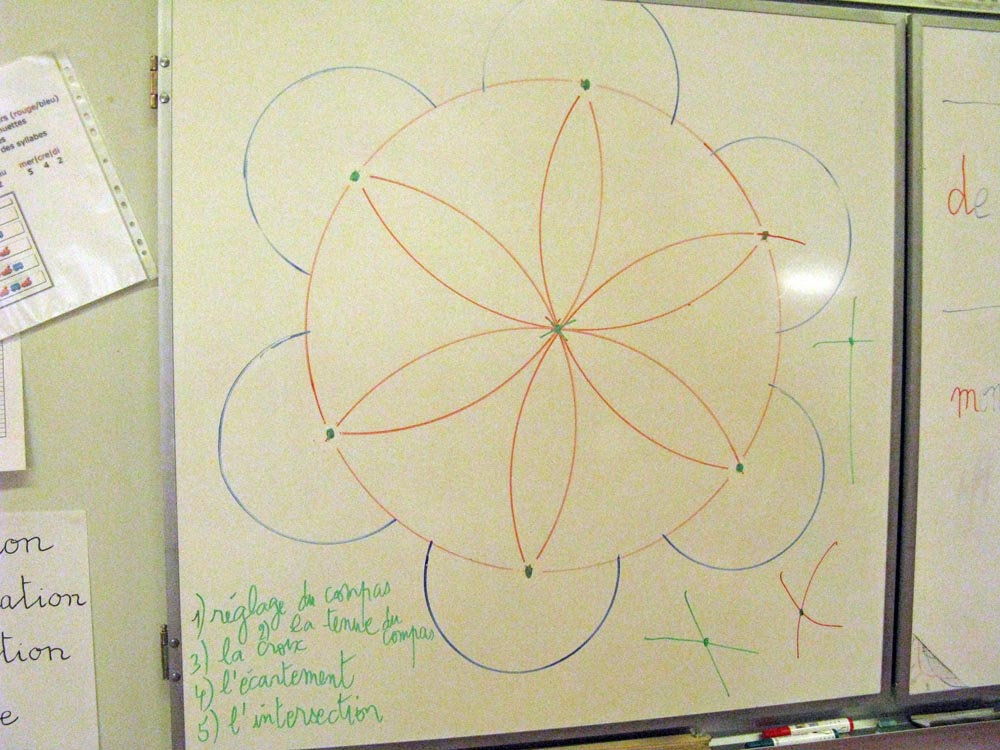 rs (rouge/bleu)
uettes
s
des syllabes
mer|cre|di
5 4 2
on
ation
tion
e
1) réglage du compas
2) la tenue du compas
3) la croix
4) l'écartement
5) l'intersection
de
m